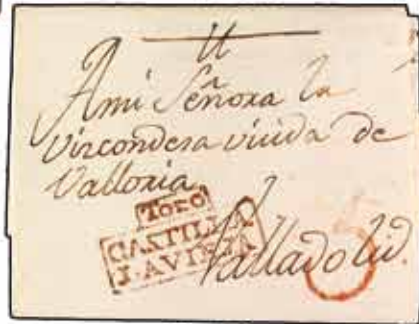 A mi Señora la
Vizcondesa viuda de
Valloria
TORO
CASTILLA
LAVIEJA
Valladolid.